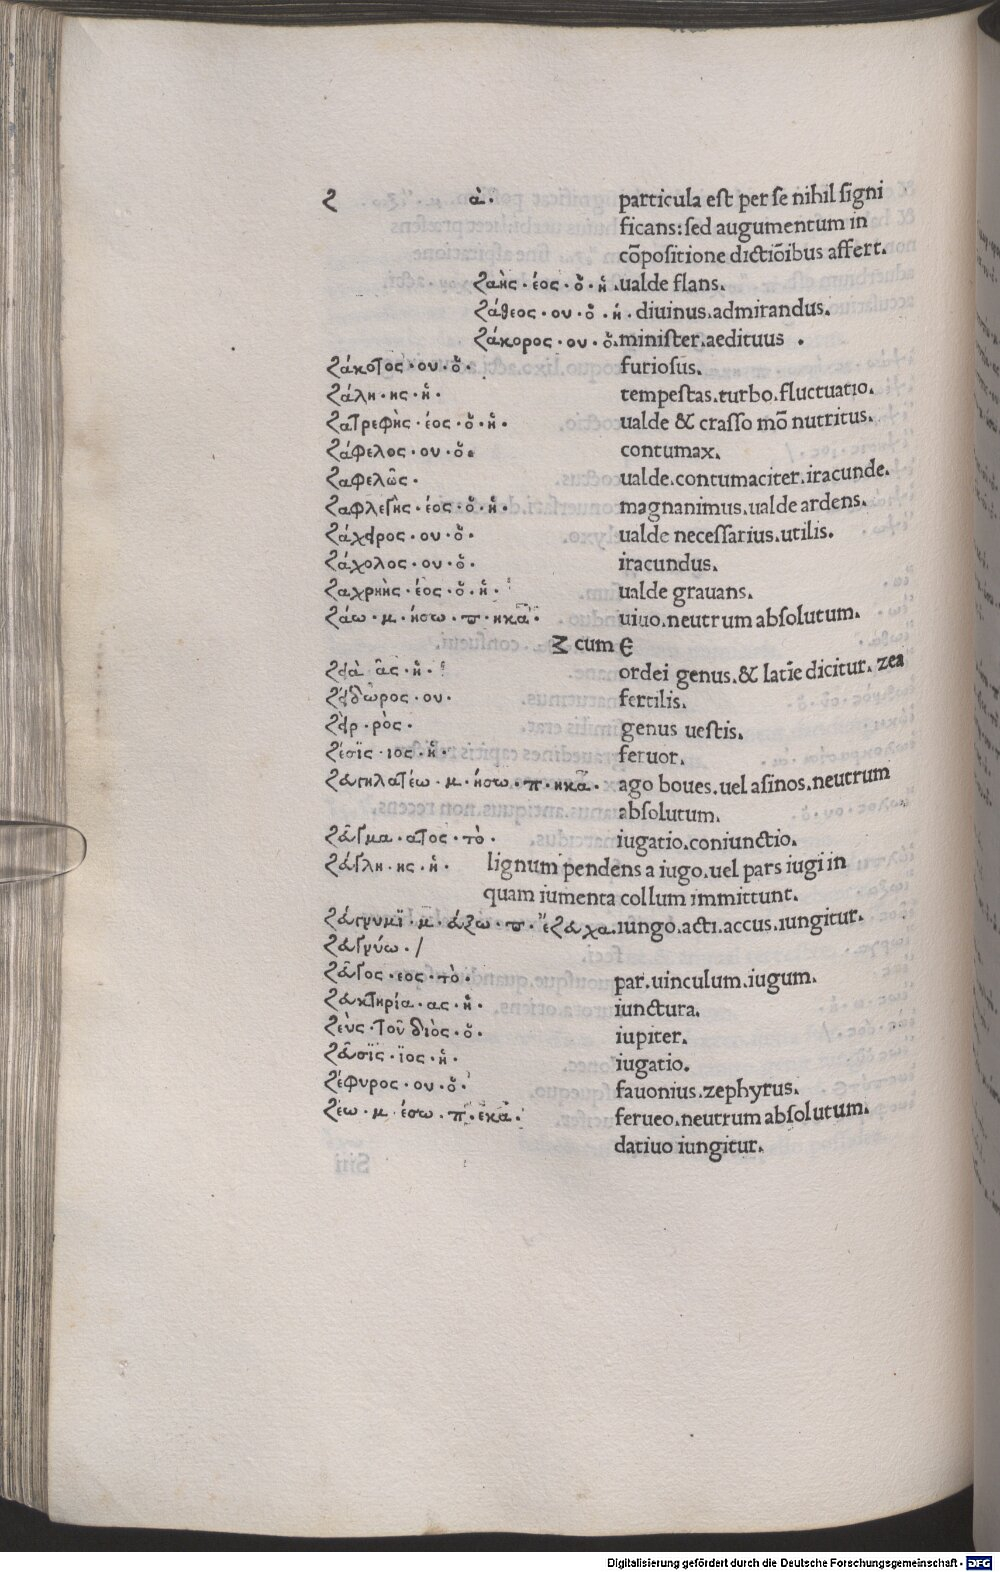 ζ ὰ· particula est per se nihil signi
ficans: sed augumentum in
cōpositione dictiōibus affert.
ζαὴς·έος·ὁ·ἡ· ualde flans.
ζάθεος·ου·ὁ·ἡ· diuinus.admirandus.
ζάκορος·ου·ὁ. minister.aedituus.
ζάκοτος·ου·ὁ· furiosus.
ζάλη·ης·ἡ· tempestas.turbo.fluctuatio.
ζατρεφὴς·έος·ὁ·ἡ· ualde & crasso mō nutritus.
ζάφελος·ου·ὁ· contumax.
ζαφελῶς· ualde.contumaciter.iracunde.
ζαφλεγὴς·έος·ὁ·ἡ· magnanimus.ualde ardens.
ζάχειρος·ου·ὁ· ualde necessarius.utilis.
ζάχολος·ου·ὁ· iracundus.
ζαχρηὴς·έος·ὁ·ἡ· ualde grauans.
ζάω·μ·ήσω·π·ηκα· uiuo.neutrum absolutum.
Ζ cum Ε
ζειὰ ᾶς·ἡ· ordei genus.& latīe dicitur. zea
ζείδωρος·ου· fertilis.
ζειρ·ρὸς· genus uestis.
ζέσϊς·ιος·ἡ· feruor.
ζευγηλατέω·μ·ήσω·π·ηκα· ago boues.uel asinos.neutrum
absolutum.
ζεῦγμα·ατος·τὸ· iugatio.coniunctio.
ζεύγλη·ης·ἡ· lignum pendens a iugo.uel pars iugi in
quam iumenta collum immittunt.
ζεύγνυμϊ·μ·εύξω·π·ἔζευχα. iungo.acti.accus.iungitur.
ζευγνύω·/
ζεῦγος·εος·τὸ· par.uinculum.iugum.
ζευκτηρία·ας·ἡ· iunctura.
ζεὺς·τοῦ διὸς·ὁ· iupiter.
ζεῦσϊς·ϊος·ἡ· iugatio.
ζέφυρος·ου·ὁ· fauonius.zephyrus.
ζέω·μ·έσω·π·εκα· ferueo.neutrum absolutum.
datiuo iungitur.
Digitalisierung gefördert durch die Deutsche Forschungsgemeinschaft - DFG